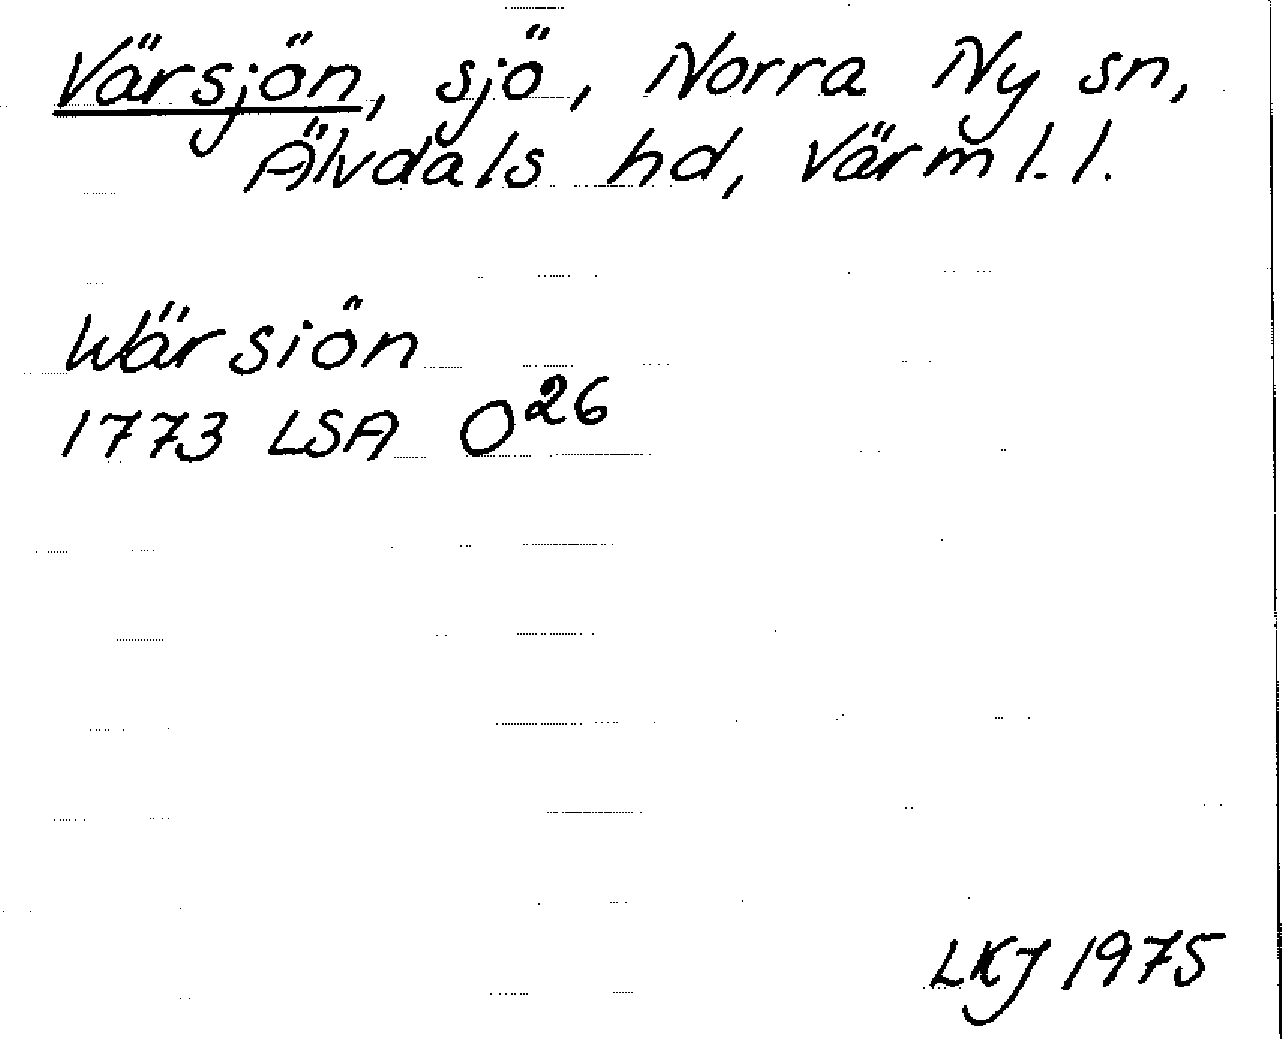 Värsjön, sjö, Norra Ny sn,
Älvdals hd, Värml. l.
Wärsiön
1773 LSA O26
LKJ 1975